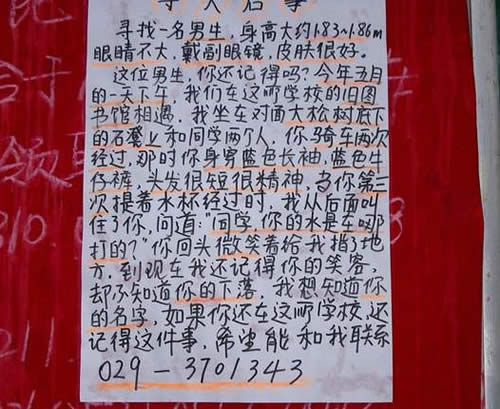 寻人启事
寻找一名男生,身高大约1.83~1.86m
眼睛不大,戴副眼镜,皮肤很好。
这位男生,你还记得吗?今年五月
的一天下午,我们在这所学校的旧图
书馆相遇,我坐在对面大松树底下
的石凳上和同学两个人,你骑车两次
经过,那时你身穿蓝色长袖,蓝色牛
仔裤,头发很短很精神,当你第三
次提着水杯经过时,我从后面叫
住了你,问道:"同学,你的水是在哪
打的?"你回头微笑着给我指了地
方,到现在我还记得你的笑容,
却不知道你的下落,我想知道你
的名字,如果你还在这所学校,还
记得这件事,希望能和我联系
029-3701343